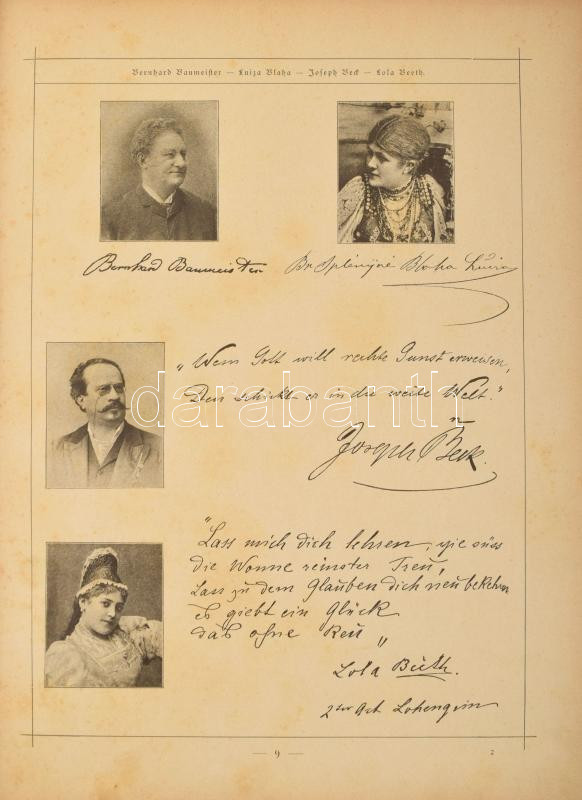 Bernhard Baumeister — Luiza Blaha — Joseph Beck — Lola Beeth.
Bernhard Baumeister
Br Splényiné Blaha Luiza
„Wem Gott will rechte Gunst erweisen,
Den schickt er in die weite Welt."
Joseph Beck.
darabanth
"Lass mich dich lehren, wie süss
die Wonne reinster Treu,
Lass zu dem Glauben dich neu bekehren
es giebt ein Glück
das ohne Reu„
Lola Beeth.
2ter Act Lohengrin
— 9 —
2